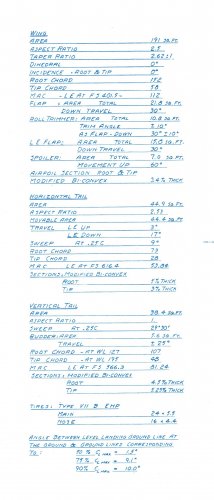 WING
AREA 191 SQ.FT.
ASPECT RATIO 2.5
TAPER RATIO 2.62:1
DIHEDRAL 0°
INCIDENCE - ROOT & TIP 0°
ROOT CHORD 152
TIP CHORD 58
M.A.C. - L.E. AT F.S. 401.5 112
FLAP: AREA TOTAL 21.8 SQ.FT.
DOWN TRAVEL 30°
ROLL TRIMMER: AREA TOTAL 10.8 SQ.FT.
TRIM ANGLE ± 10°
AS FLAP - DOWN 30° ± 10°
L.E. FLAP: AREA TOTAL 15.8 SQ.FT.
DOWN TRAVEL 30°
SPOILER: AREA TOTAL 7.0 SQ.FT.
MOVEMENT UP 60°
AIRFOIL SECTION ROOT & TIP
MODIFIED BI-CONVEX 3.4% THICK
HORIZONTAL TAIL
AREA 44.9 SQ.FT.
ASPECT RATIO 2.53
MOVABLE AREA 44.4 SQ.FT.
TRAVEL L.E. UP 5°
L.E. DOWN 17°
SWEEP AT .25C 9°
ROOT CHORD 73
TIP CHORD 28
M.A.C. L.E. AT F.S. 616.4 53.88
SECTIONS: MODIFIED BI-CONVEX
ROOT 5% THICK
TIP 3% THICK
VERTICAL TAIL
AREA 38.4 SQ.FT.
ASPECT RATIO 1
SWEEP AT .25C 28°30'
RUDDER: AREA 5.6 SQ.FT.
TRAVEL ± 25°
ROOT CHORD - AT WL 127 107
TIP CHORD - AT WL 195 48
M.A.C. L.E. AT F.S. 566.3 81.24
SECTIONS: MODIFIED BI-CONVEX
ROOT 4.5% THICK
TIP 5.25% THICK
TIRES: TYPE VII B EHP
MAIN 24 × 5.5
NOSE 16 × 4.4
ANGLE BETWEEN LEVEL LANDING GROUND LINE AT
THE GROUND & GROUND LINES CORRESPONDING
TO: 70% CL MAX = 7.5°
75% CL MAX = 9.1°
90% CL MAX = 10.0°